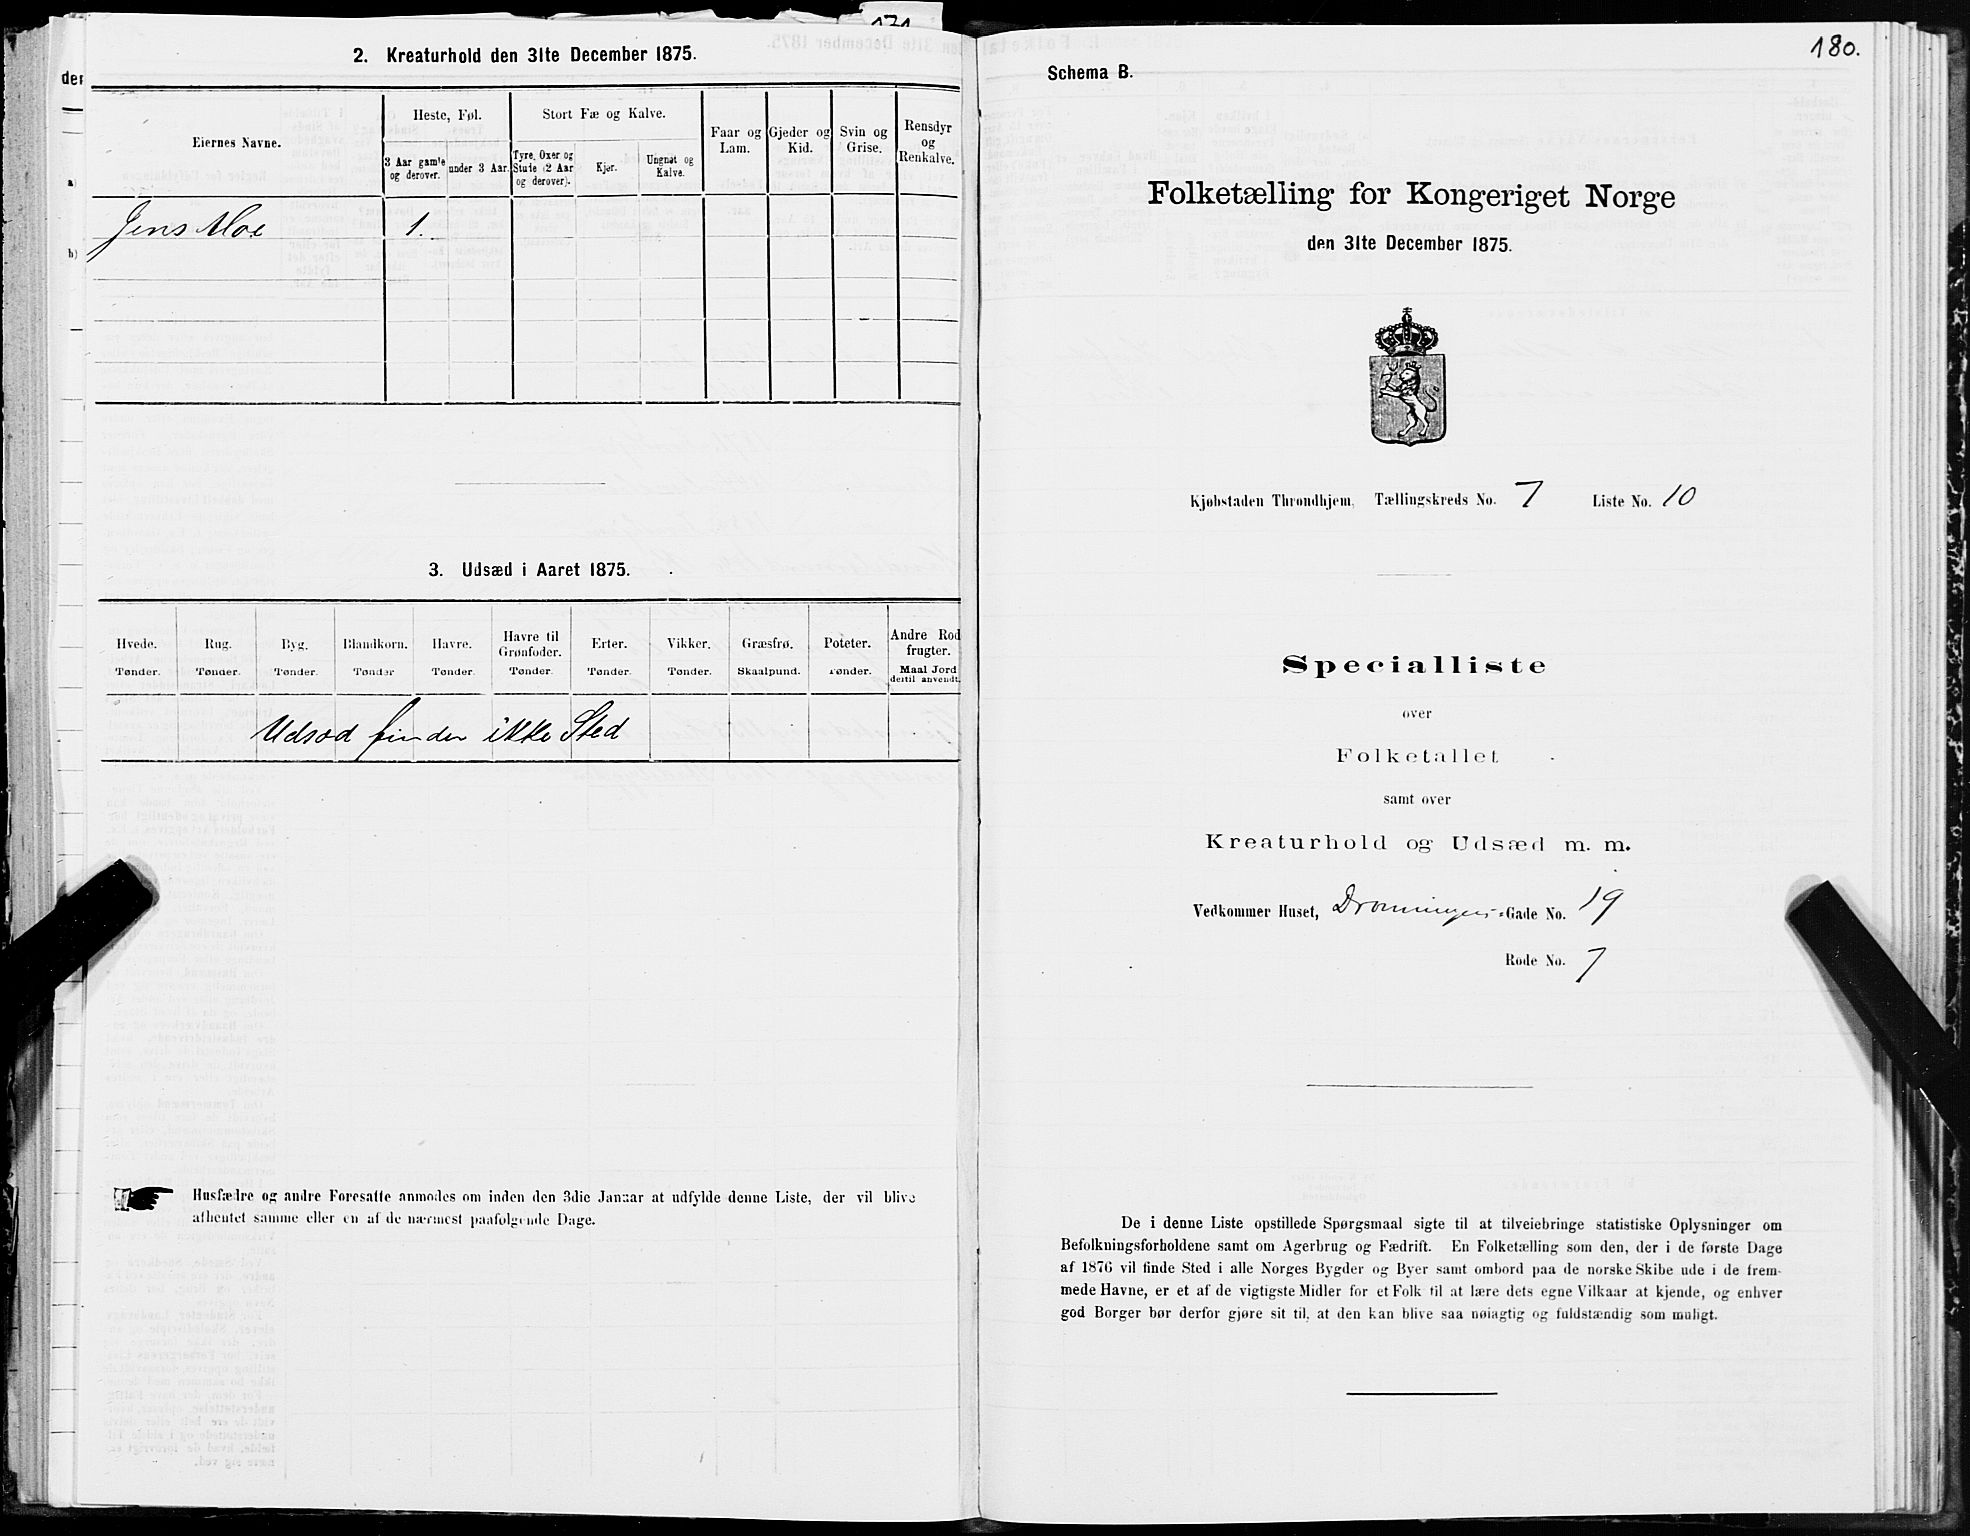 171
2. Kreaturhold den 31te December 1875.
Eiernes Navne.
Heste, Føl.
Stort Fæ og Kalve.
Faar og Lam.
Gjeder og Kid.
Svin og Grise.
Rensdyr og Renkalve.
3 Aar gamle og derover.
under 3 Aar.
Tyre, Oxer og Stude (2 Aar og derover).
Kjør.
Ungnøt og Kalve.
a)
Jens Moe 1.
b)
3. Udsæd i Aaret 1875.
Hvede. Rug. Byg. Blandkorn. Havre. Havre til Grønfoder. Erter. Vikker. Græsfrø. Poteter. Andre Rodfrugter.
Tønder. Tønder. Tønder. Tønder Tønder. Tønder. Tønder. Tønder. Skaalpund. Tønder. Maal Jord dertil anvendt.
Udsæd finder ikke Sted
Husfædre og andre Foresatte anmodes om inden den 3die Januar at udfylde denne Liste, der vil blive
afhentet samme eller en af de nærmest paafølgende Dage.
180.
Schema B.
Folketælling for Kongeriget Norge
den 31te December 1875.
Kjøbstaden Throndhjem, Tællingskreds No. 7 Liste No. 10
Specialliste
over
Folketallet
samt over
Kreaturhold og Udsæd m. m.
Vedkommer Huset, Dronningens-Gade No. 19
Rode No. 7
De i denne Liste opstillede Spørgsmaal sigte til at tilveiebringe statistiske Oplysninger om
Befolkningsforholdene samt om Agerbrug og Fædrift. En Folketælling som den, der i de første Dage
af 1876 vil finde Sted i alle Norges Bygder og Byer samt ombord paa de norske Skibe ude i de frem-
mede Havne, er et af de vigtigste Midler for et Folk til at lære dets egne Vilkaar at kjende, og enhver
god Borger bør derfor gjøre sit til, at den kan blive saa nøiagtig og fuldstændig som muligt.